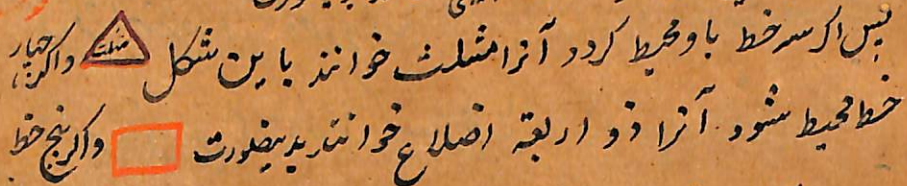 پس اگر سه خط باو محیط کردد آنرا مثلث خوانند باین شکل مثلث و اگر چهار
خط محیط شود آنرا ذو اربعة اضلاع خوانند بدینصورت و اگر پنج خط